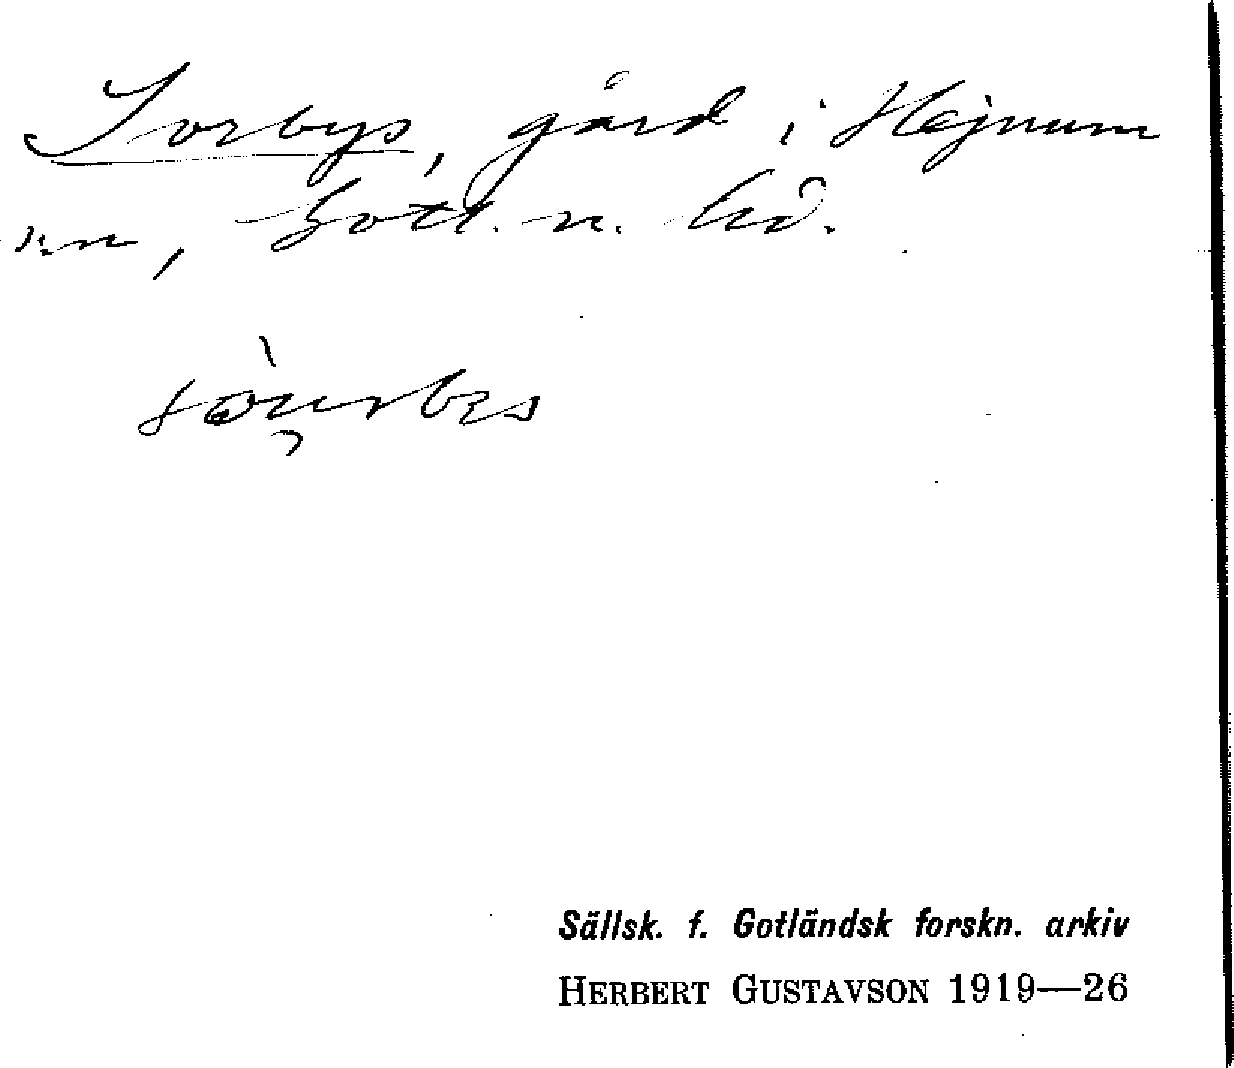 Sorbys, gård i Hejnum
sn, Gotl. n. hd.
Sällsk. f. Gotländsk forskn. arkiv
HERBERT GUSTAVSON 1919—26